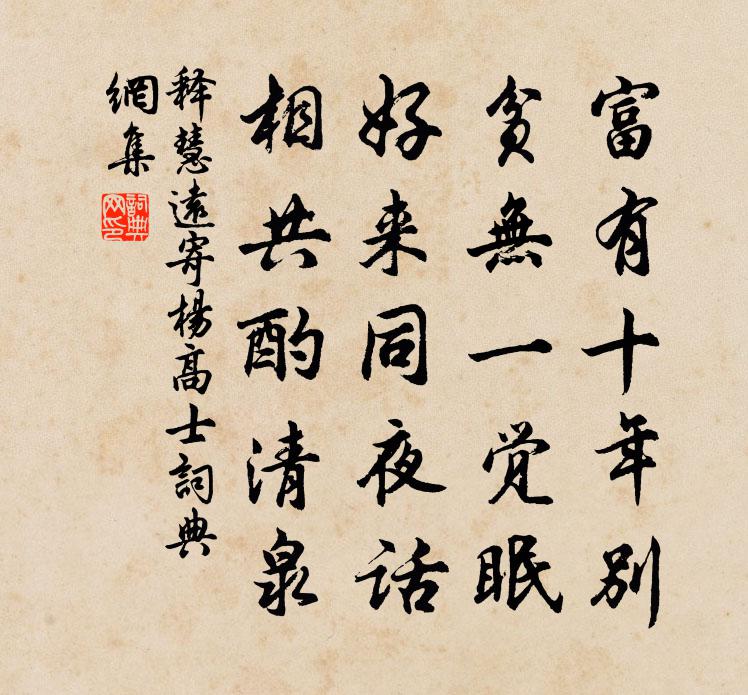 富有十年别
贫無一觉眠
好来同夜话
相共酌清泉
释慧遠寄楊高士詞典
網集
詞典网印